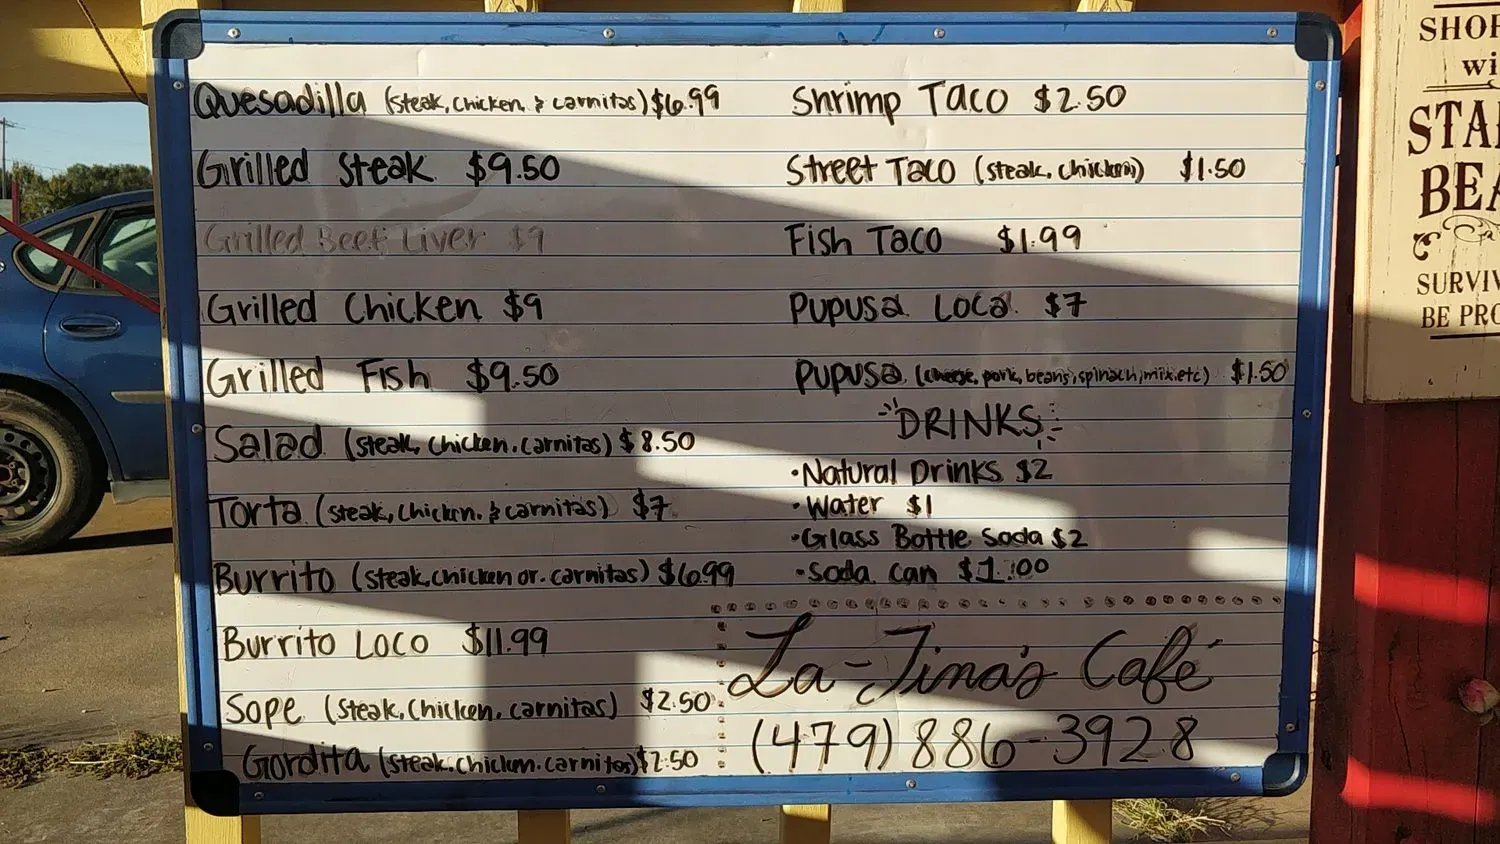 Quesadilla (steak, chicken, & carnitas) $6.99
Grilled Steak $9.50
Grilled Beef Liver $9
Grilled Chicken $9
Grilled Fish $9.50
Salad (steak, chicken, carnitas) $8.50
Torta (steak, chicken, & carnitas) $7
Burrito (steak, chicken or carnitas) $6.99
Burrito Loco $11.99
Sope (steak, chicken, carnitas) $2.50
Gordita (steak, chicken, carnitas) $2.50
Shrimp Taco $2.50
Street Taco (steak, chicken) $1.50
Fish Taco $1.99
Pupusa Loca $7
Pupusa (cheese, pork, beans, spinach, mix, etc) $1.50
DRINKS
• Natural Drinks $2
• Water $1
• Glass Bottle Soda $2
• Soda can $1.00
La-Tina's Café
(479) 886-3928